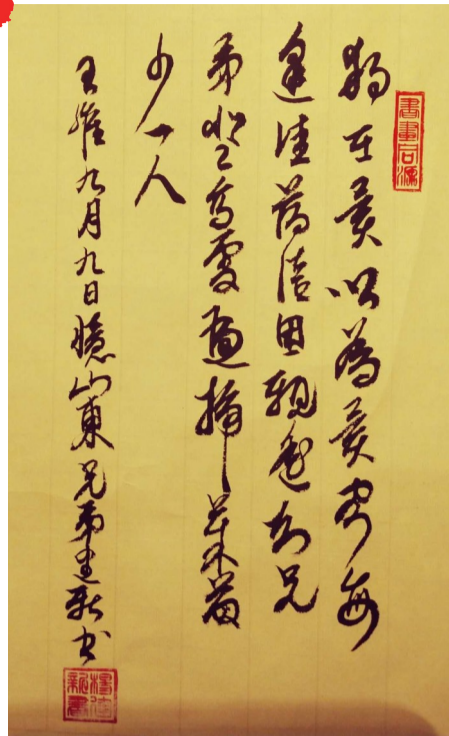 書畫同源
獨在異鄉為異客每
逢佳節倍思親遙知兄
弟登高處遍插茱萸
少一人
王維九月九日憶山東兄弟建新書